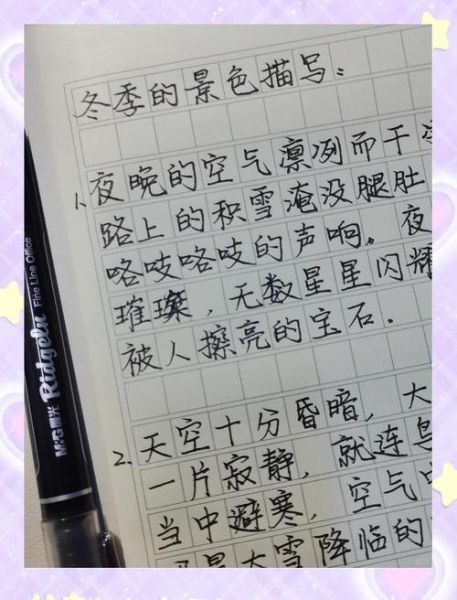 冬季的景色描写：
1、夜晚的空气凛冽而干
路上的积雪淹没腿肚
咯吱咯吱的声响。夜
璀璨，无数星星闪耀
被人擦亮的宝石.
2、天空十分昏暗，大
一片寂静，就连鸟
当中避寒，空气中
是大雪降临的
M&G晨光 Ridgeln Fine Line Office